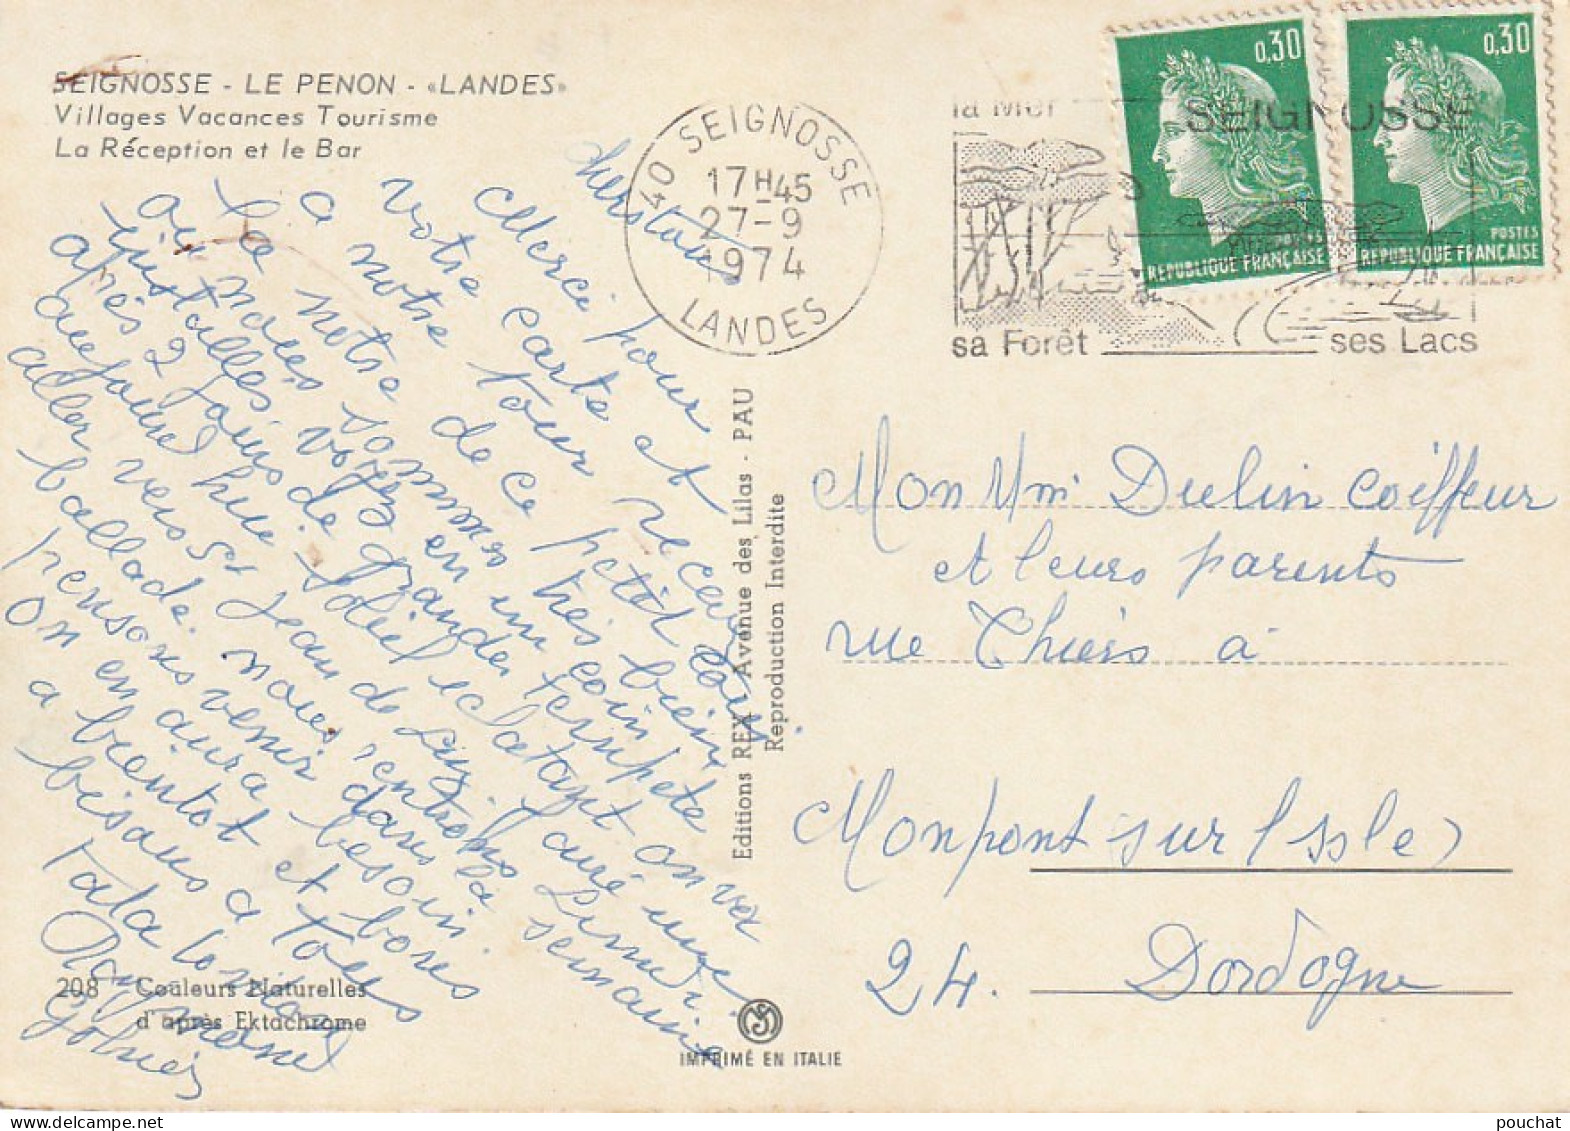 SEIGNOSSE - LE PENON - «LANDES»
Villages Vacances Tourisme
La Réception et le Bar
40 SEIGNOSSE
17H45
27-9
1974
LANDES
la Mer
SEIGNOSSE
sa Forêt
ses Lacs
0,30
POSTES
REPUBLIQUE FRANÇAISE
0,30
POSTES
REPUBLIQUE FRANÇAISE
chers tous
Merci pour
votre carte et
a notre tour recevez
la notre de ce petit coin
ou nous sommes très bien
installés voyez en un
après 2 jours de grande tempête
aujourd hui soleil eclatant on va
aller vers St Jean de Luz faire une
ballade. nous rentrons Lundi
pensons venir dans la semaine
On en aura besoin.
a bientot et bones
bisous a tous
Tata
Raymond
208 - Couleurs Naturelles
d'après Ektachrome
Editions REX - Avenue des Lilas - PAU
Reproduction Interdite
IMPRIMÉ EN ITALIE
Mon Mme Dulin coiffeur
et leurs parents
rue Thiers à
Monpont sur l Issle
24. Dordogne
pouchat